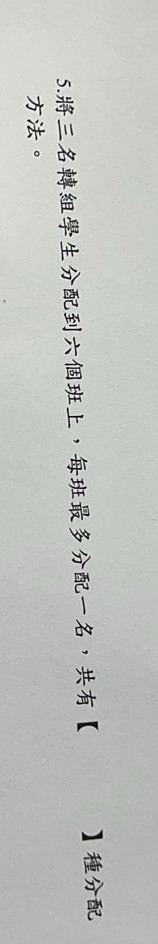 5.將三名轉組學生分配到六個班上，每班最多分配一名，共有【　　　】種分配
方法。